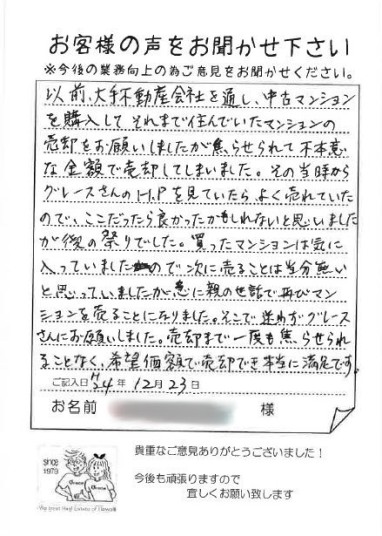 お客様の声をお聞かせ下さい
※今後の業務向上の為ご意見をお聞かせください。
以前、大手不動産会社を通し、中古マンション
を購入して それまで住んでいたマンションの
売却をお願いしましたが焦らせられて不本意
な金額で売却してしまいました。その当時から
グレースさんのH.Pを見ていたら、よく売れていた
ので、ここだったら良かったかもしれないと思いました
が後の祭りでした。買ったマンションは気に
入っていましたので次に売ることは当分無い
と思っていましたが急に親の世話で再びマン
ションを売ることになりました。そこで迷わずグレース
さんにお願いしました。売却まで一度も焦らせられ
ることなく、希望価額で売却でき本当に満足です。
ご記入日 H24年 12月 23日
お名前 様
貴重なご意見ありがとうございました!
今後も頑張りますので
宜しくお願い致します
SINCE
1979